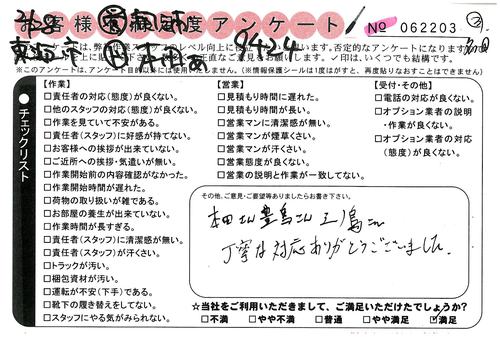 お客様満足度アンケート
No 062203
東海市
8424
※このアンケートは、アンケート目的以外には使用いたしません。(※情報保護シールは1度がはすと、再度貼りなおすことはできません)
チェックリスト
【作業】
□責任者の対応(態度)が良くない。
□他のスタッフの対応(態度)が良くない。
□作業を見ていて不安がある。
□責任者(スタッフ)に好感が持てない。
□お客様への挨拶が出来ていない。
□ご近所への挨拶・気遣いが無い。
□作業開始前の内容確認がなかった。
□作業開始時間が遅れた。
□荷物の取り扱いが雑である。
□お部屋の養生が出来ていない。
□作業時間が長すぎる。
□責任者(スタッフ)に清潔感が無い。
□責任者(スタッフ)が汗くさい。
□トラックが汚い。
□梱包資材が汚い。
□運転が不安(下手)である。
□靴下の履き替えをしてない。
□スタッフにやる気がみられない。
【営業】
□見積もり時間に遅れた。
□見積もり時間が長い。
□営業マンに清潔感が無い。
□営業マンが煙草くさい。
□営業マンが汗くさい。
□営業態度が良くない。
□営業の説明と作業が一致してない。
【受付・その他】
□電話の対応が良くない。
□オプション業者の説明
・作業が良くない。
□オプション業者の対応
(態度)が良くない。
その他、ご意見・ご要望等ありましたらお書き下さい。
本田さん豊島さん五ノ島さん
丁寧な対応ありがとうございました。
☆当社をご利用いただきまして、ご満足いただけたでしょうか?
□不満 □やや不満 □普通 □やや満足 ☑満足